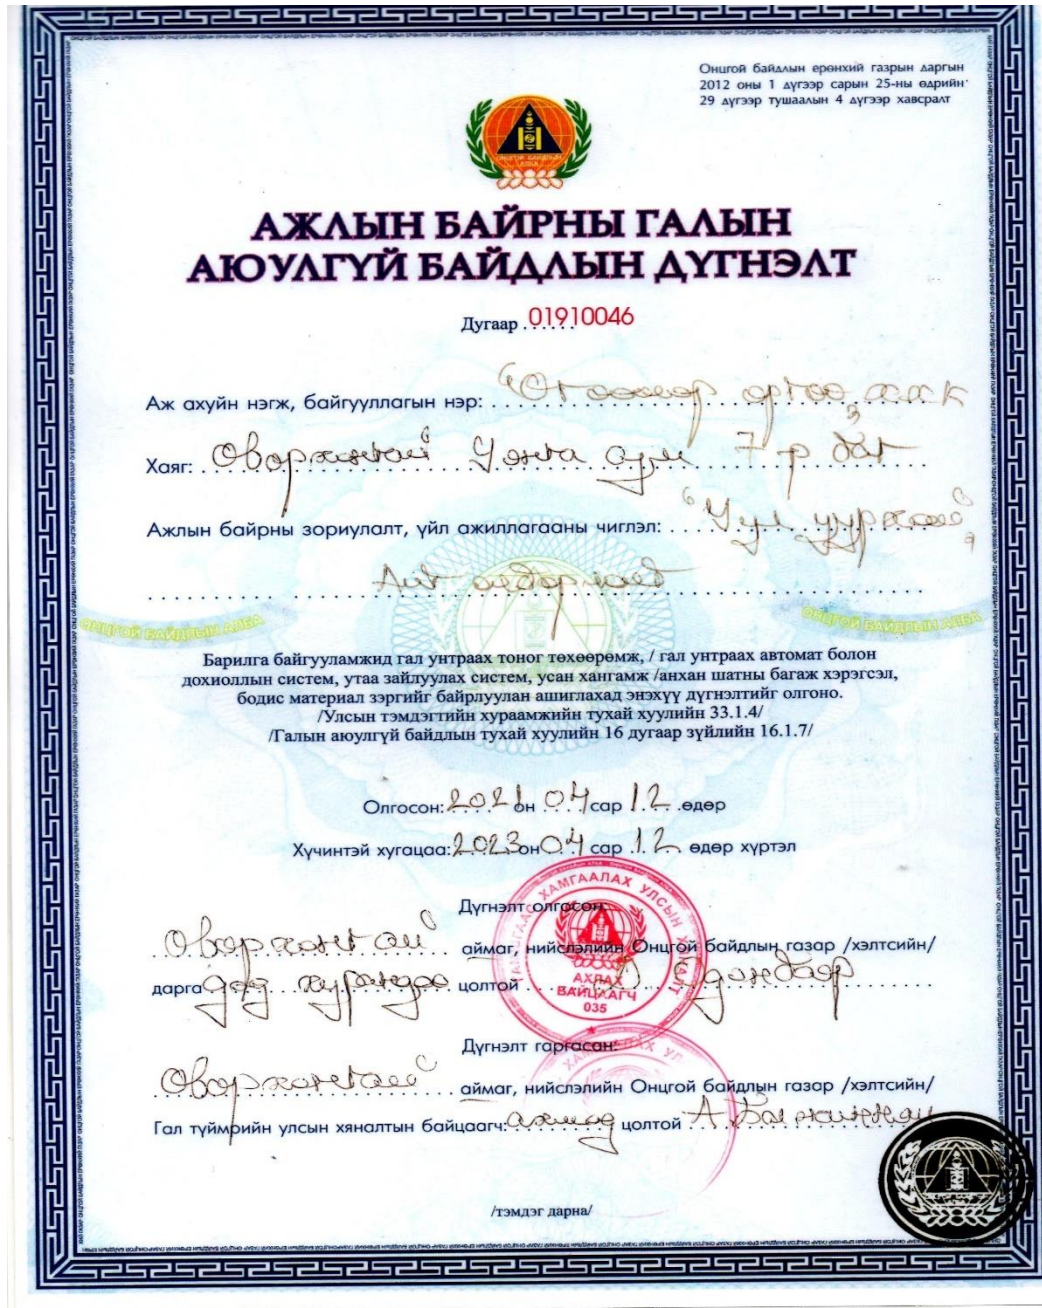 Онцгой байдлын ерөнхий газрын даргын
2012 оны 1 дүгээр сарын 25-ны өдрийн
29 дүгээр тушаалын 4 дүгээр хавсралт
ОНЦГОЙ БАЙДЛЫН
АЛБА
АЖЛЫН БАЙРНЫ ГАЛЫН
АЮУЛГҮЙ БАЙДЛЫН ДҮГНЭЛТ
Дугаар 01910046
Аж ахуйн нэгж, байгууллагын нэр: ХХК
Хаяг: Өвөрхангай Уянга сум 7-р баг
Ажлын байрны зориулалт, үйл ажиллагааны чиглэл: "Уул уурхай"
Алт олборлолт
ОНЦГОЙ БАЙДЛЫН АЛБА
ОНЦГОЙ БАЙДЛЫН АЛБА
Барилга байгууламжид гал унтраах тоног төхөөрөмж, / гал унтраах автомат болон
дохиоллын систем, утаа зайлуулах систем, усан хангамж /анхан шатны багаж хэрэгсэл,
бодис материал зэргийг байрлуулан ашиглахад энэхүү дүгнэлтийг олгоно.
/Улсын тэмдэгтийн хураамжийн тухай хуулийн 33.1.4/
/Галын аюулгүй байдлын тухай хуулийн 16 дугаар зүйлийн 16.1.7/
Олгосон: 2021 он 04 сар 12 өдөр
Хүчинтэй хугацаа: 2023 он 04 сар 12 өдөр хүртэл
Дүгнэлт олгосон:
Өвөрхангай аймаг, нийслэлийн Онцгой байдлын газар /хэлтсийн/
дарга дэд хурандаа цолтой
АХЛАХ
БАЙЦААГЧ
035
Дүгнэлт гаргасан:
Өвөрхангай аймаг, нийслэлийн Онцгой байдлын газар /хэлтсийн/
Гал түймрийн улсын хяналтын байцаагч: ахмад цолтой
/тэмдэг дарна/